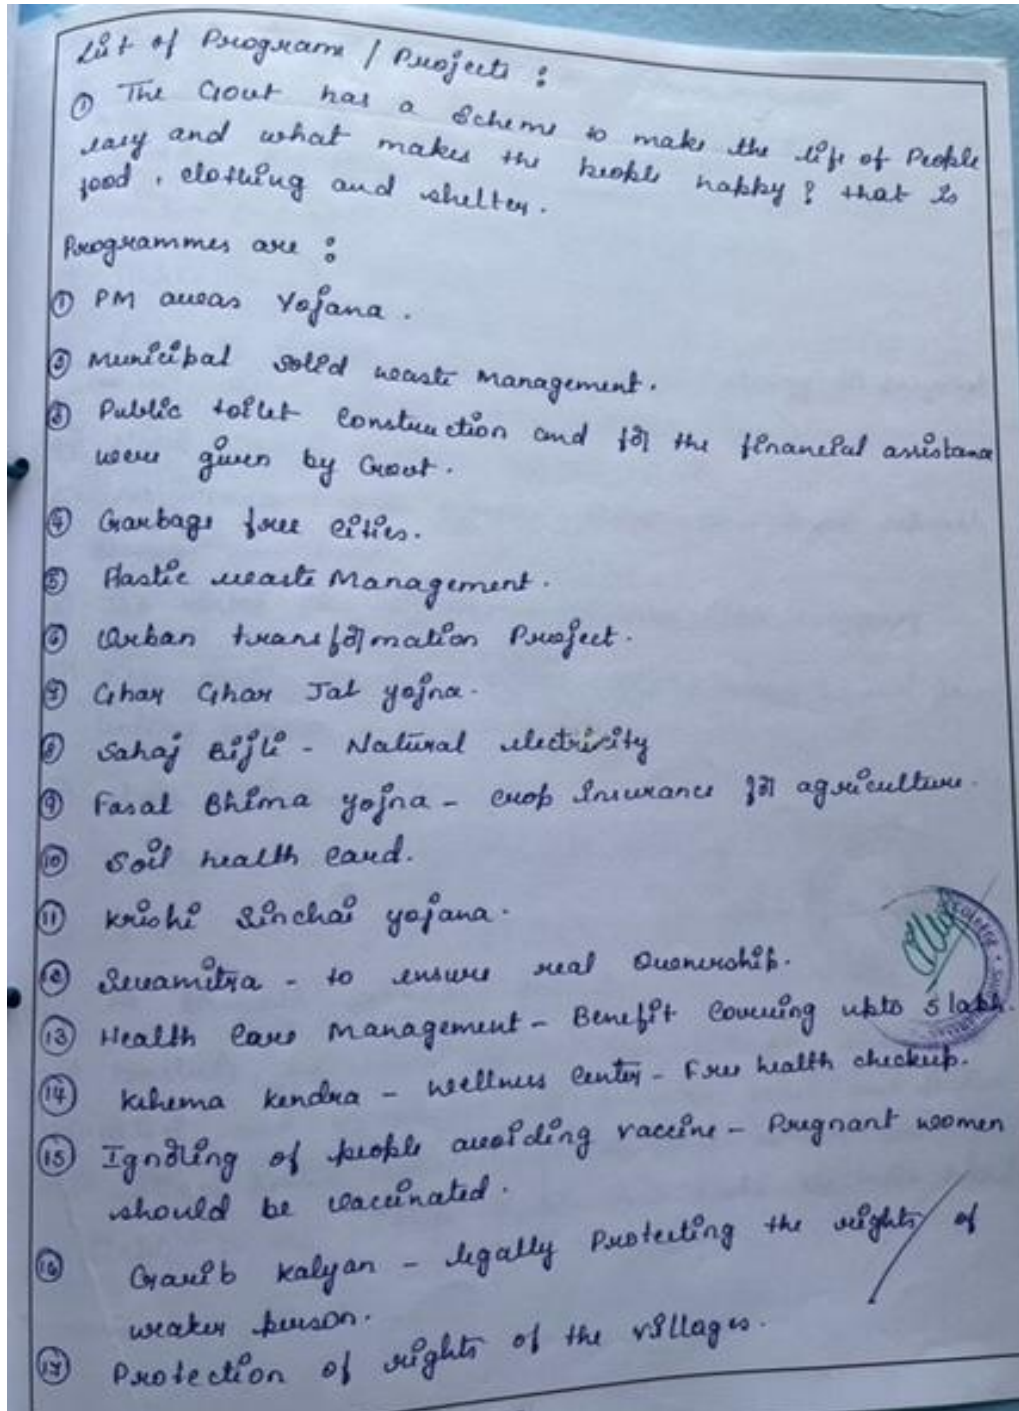 List of Programe / Projects :
① The Govt has a Scheme to make the life of People
easy and what makes the people happy ? that is
food , clothing and shelter .
Programmes are :
① PM awas Yojana .
② Municipal solid waste Management .
③ Public toilet Construction and for the financial assistance
were given by Govt .
④ Garbage free cities .
⑤ Plastic waste Management .
⑥ Urban transformation Project .
⑦ Ghar Ghar Jal yojna .
⑧ Sahaj Bijli - Natural electricity
⑨ Fasal Bhima yojna - crop insurance for agriculture .
⑩ Soil health card .
⑪ Krishi Sinchai yojana .
⑫ Swamitra - to ensure real Ownership .
⑬ Health Care Management - Benefit Covering upto 5 lakh .
⑭ Kshema Kendra - wellness Center - Free health checkup .
⑮ Ignoring of people avoiding vaccine - Pregnant women
should be vaccinated .
⑯ Garib Kalyan - legally Protecting the rights of
weaker person .
⑰ Protection of rights of the villages .